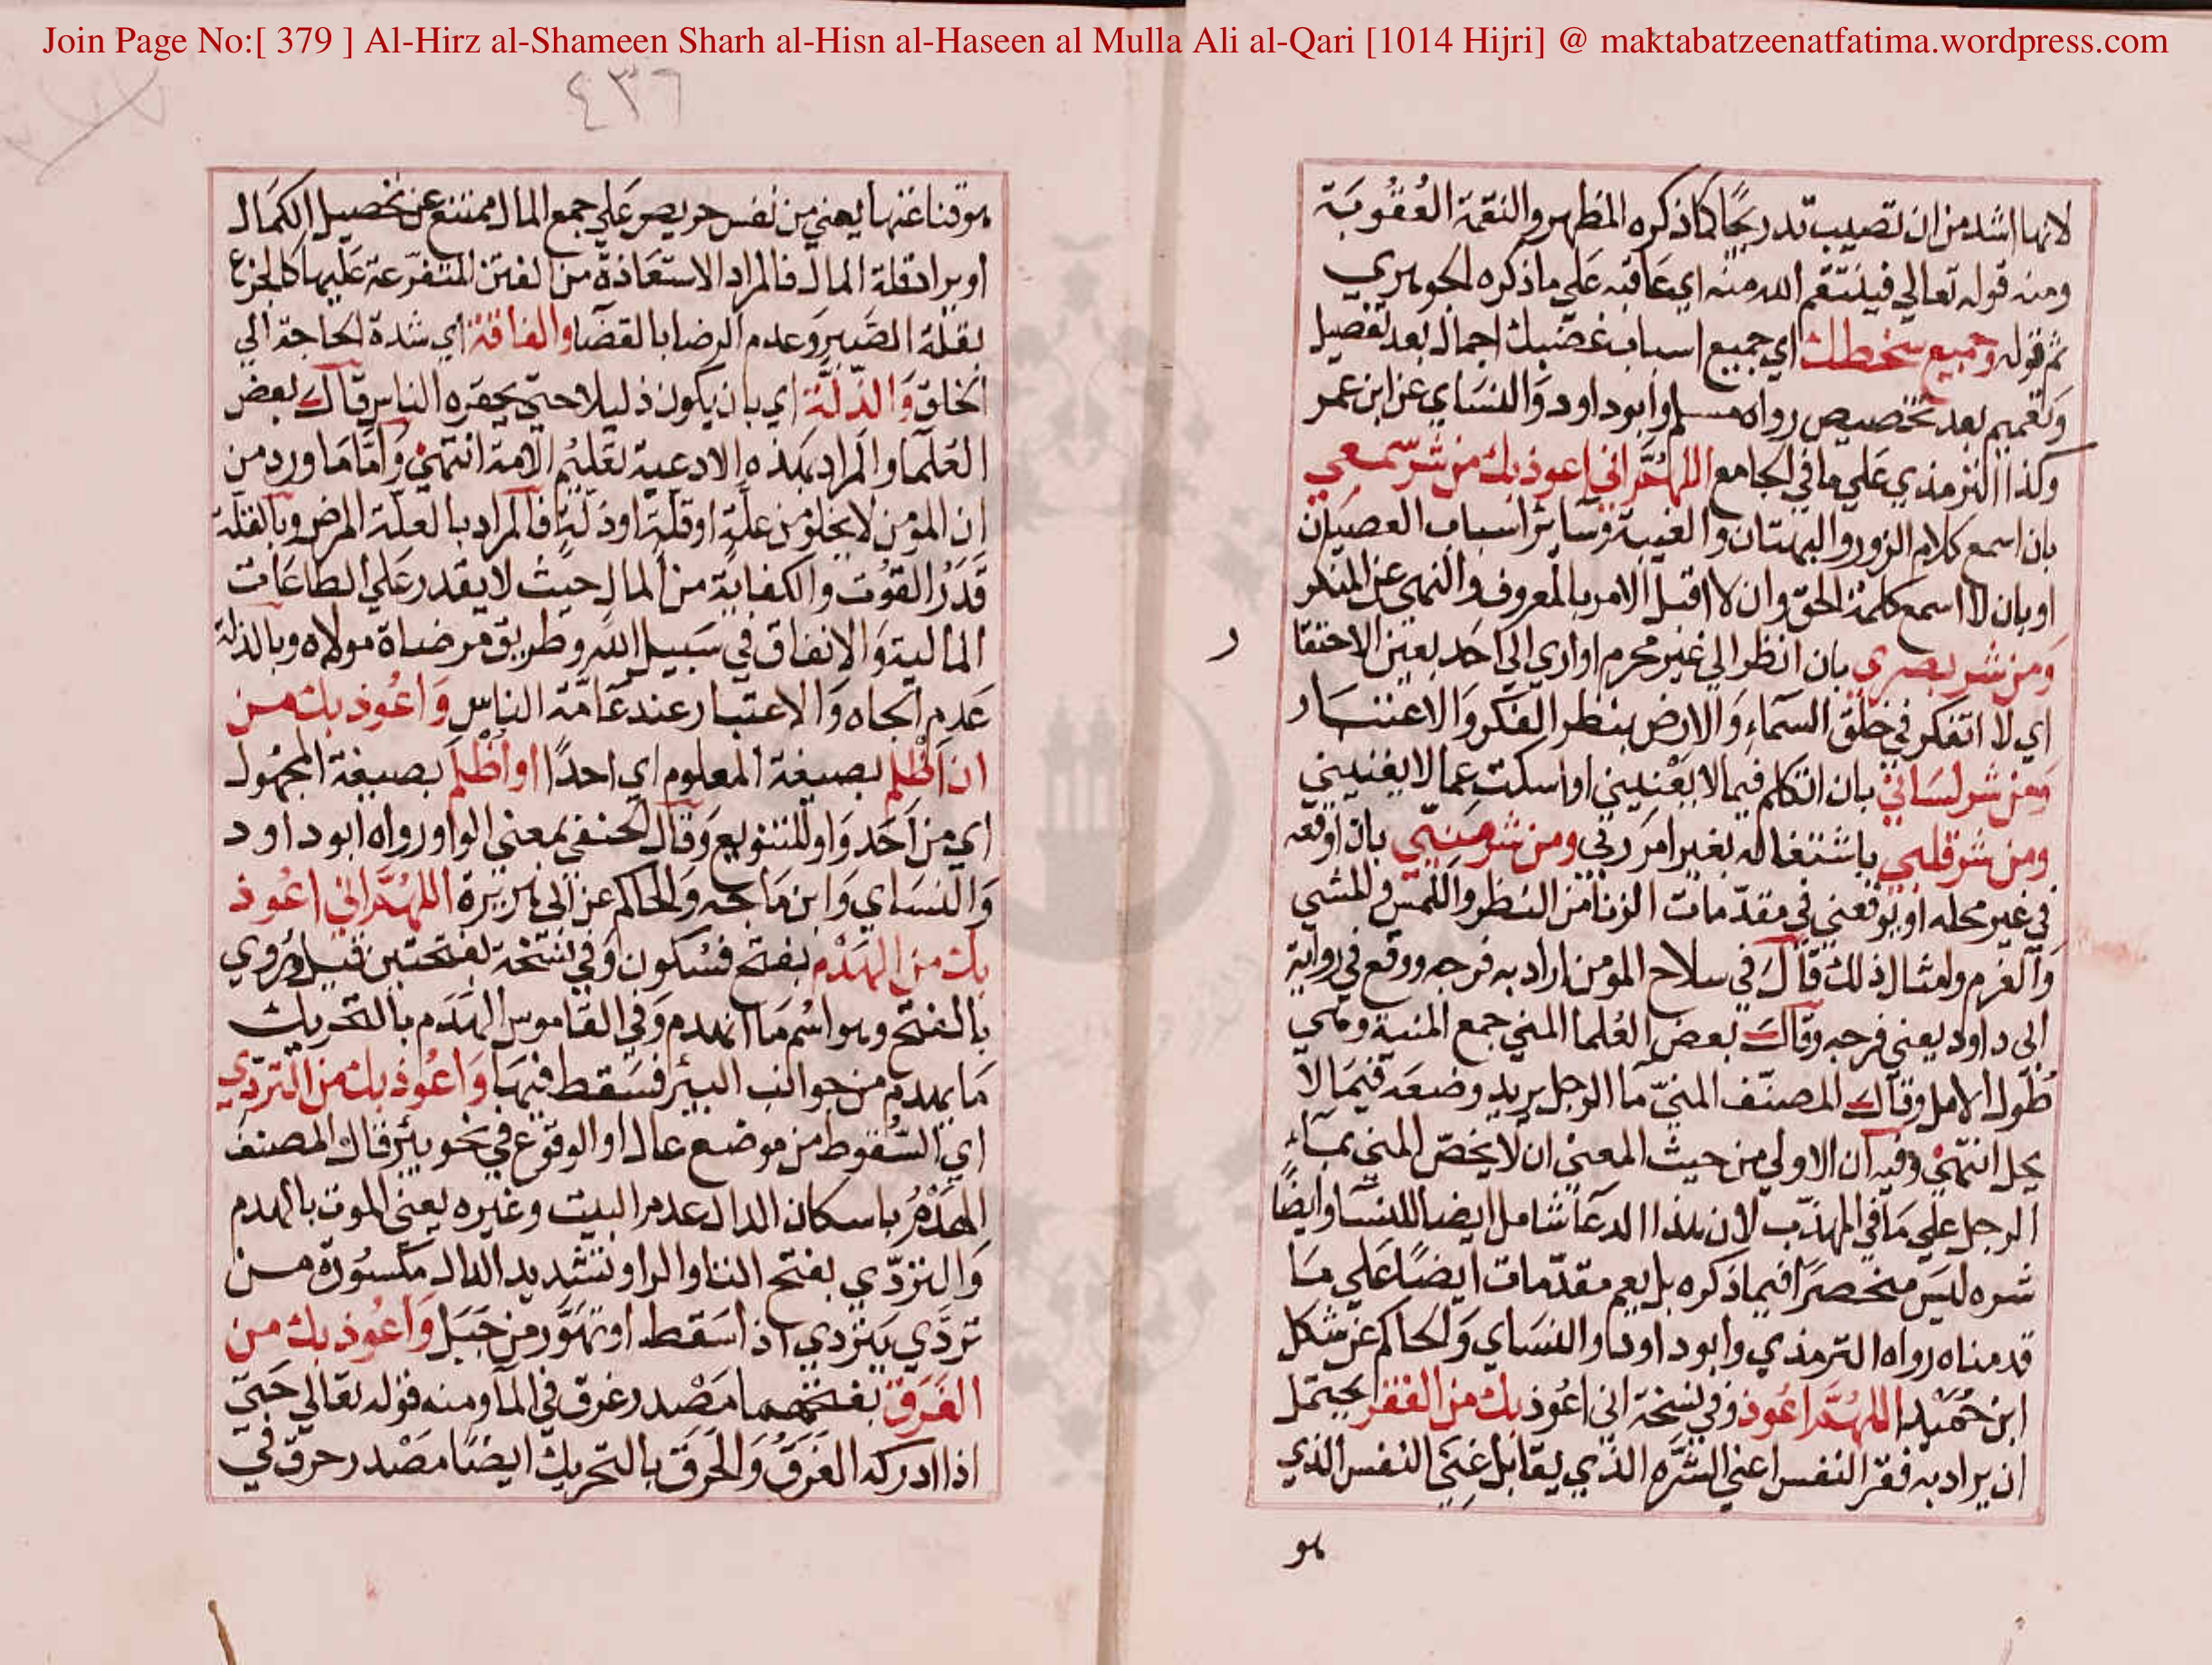 Join Page No:[ 379 ] Al-Hirz al-Shameen Sharh al-Hisn al-Haseen al Mulla Ali al-Qari [1014 Hijri] @ maktabatzeenatfatima.wordpress.com
٤٣٦
لانها اشد من ان تصيب تدريجًا كما ذكره المظهر والنقمة العُقُوبَة
ومنه قوله تعالي فينتقم الله منه اي عَاقبه عَلي ما ذكره الجوهري
ثم قوله وجميع سخطك اي جميع اسباب غضبك اجمال بعد تفصيل
وتعميم بعد تخصيص رواه مسلم وابو داود وَالنسَاي عن ابن عمر
وكذا الترمذي عَلي ما في الجامع اللهُمَّ اني اعوذ بك من شرّ سمعي
بان اسمع كلام الزور والبهتان والغيبة وسَاير اسباب العصيَان
او بان لا اسمع كلمة الحق وان لا اقبل الامر بالمعروف والنهي عن المنكر
وَمن شر بصري بان انظر الي غير محرم او اري الي احَد بعين الاحتقا
ر
اي لا اتفكر في خلق السمَاء وَالارض بنظر الفكر وَالاعتبَار
ومن شر لسَاني بان اتكلم فيما لا يَعْنيني او اسكت عما لا يعنيني
ومن شر قلبي باشتغاله بغير امر ربي ومن شر مَنِيّي بان اوقعه
في غير محله او يوقعني في مقدّمات الزنا من النظر واللمس والمشي
وَالعزم وامثال ذلك قال في سلاح المومن اراد به فرجه ووقع في رواية
ابي داود يعني فرجه وقال بعض العُلما المني جمع المنية وهي
طُول الامل وقال المصنّف المنيّ ما الرجل يريد وضعَه فيمَا لا
يحل انتهيْ وفيه ان الاولي من حيث المعني ان لا يخصّ المني بمَاء
الرجل علي مَا في المهذّب لان هذا الدعَا شامل ايضا للنسَا وايضًا
شره ليسَ منحصرًا فيما ذكره بل يعم مقدّمات ايضًا عَلي مَا
قدمناه رواه الترمذي وابو داود والنسَاي وَالحاكم عن شكل
ابن حُمَيْد اللهُمَّ اعُوذ وفي نسخة اني اعُوذ بك من الفقر يحتمل
ان يراد به فقر النفس اعني الشَّرَه الذي يقابل غِنَي النفس الذي
هو
هو قناعتها يعني من نفس حريص عَلي جمع المال ممتنع عن تحصيل الكمَال
او يراد قلة المال فالمراد الاستعَاذة من الفتن المتفرّعة عَليها كالجزع
بقلة الصَّبر وَعدم الرضا بالقضا والفاقة اي شدة الحَاجة الي
الخلق وَالذِّلّة اي بان يكون ذليلا حتي يحقره الناس قال بعض
العُلما والمراد بهَذه الادعية تعليم الامة انتهي وَامّا مَا ورد من
ان المومن لا يخلو من علّة او قلّة او ذلّة فالمراد بالعلّة المرض وبالقلة
قَدْرُ القوُت والكفاية من المال حيث لا يقدر عَلي الطاعَات
المالية وَالانفاق في سَبيل الله وطريق مرضاة مولاه وبالذلة
عَدم الجاه وَالاعتبار عند عَامّة الناس وَاعُوذ بك من
ان اَظلِم بصيغة المعلوم اي احدًا او اُظْلَمَ بصيغة المجهُول
اي من اَحَد وَاو للتنويع وَقال الحنفي بمعني الواو رواه ابو داود
وَالنسَاي وَابن مَاجه وَالحاكم عن ابي هريرَة اللهُمَّ اني اعُوذ
بك من الهَدْم بفتح فسُكون وَفي نسخة بفتحتين قيل وَرُوي
بالفتح وهو اسْم مَا انهدم وَفي القاموس الهَدَم بالتحريك
مَا يهدم من جوانب البيئر فسَقط فيهَا وَاعُوذ بك من التردّي
اي السُّقوط من موضع عال او الوقوع في نحو بيئر قال المصنف
الهَدْمُ باسكان الدال عدم البيت وغيره يعني الموت بالهدم
وَالتردّي بفتح التا والرا وتشديد الدال مكسُورة من
تردَّي يَتردي اذا سَقط او تهَوَّر من جَبَل وَاعُوذ بك من
الغَرَق بفتحهما مَصْدر غرق في المآ ومنه قوله تعَالي حَتّي
اذا ادركه الغَرَقُ وَالحَرَق بالتحريك ايضًا مَصْدر حرق في